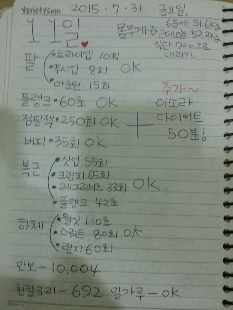 varietysom
2015. 7. 31 금요일
11일
몸무게
팔
트라이업 10회
푸시업 8회 OK
아운린 15회
추가~
이소라
다이어트
50분
플랭크 - 60초 OK
점핑잭 - 250회 OK
버피 - 35회 OK
복근
싯업 55회
크런치 65회
레그레이즈 33회 OK
플랭크 42초
하체
월싯 110초
스쿼트 80회 OK
런지 60회
만보 - 10,004
칸칼로리 - 692 밀가루 - OK